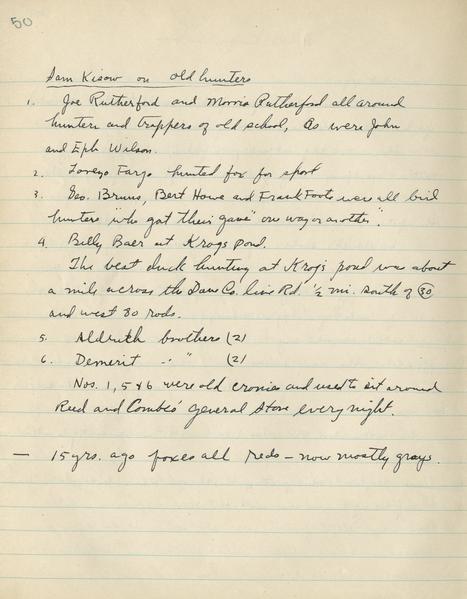 50
Sam Kisow on old hunters
1. Joe Rutherford and Morris Rutherford all around
hunters and trappers of old school, As were John
and Eph Wilson.
2. Lorenzo Fargo hunted fox for sport
3. Geo. Bruns, Bert Howe and Frank Foote were all bird
hunters "who got their game" on way or another".
4. Billy Baer at Krogs pond.
The best duck hunting at Krogs pond was about
a mile across the Dane Co. line Rd. 1/2 mi. south of 30
and west 80 rods.
5. Aldruth brothers (2)
6. Demerit " " (2)
Nos. 1, 5 & 6 were old cronies and used to sit around
Reed and Combs' general store every night.
— 15 yrs. ago foxes all reds – now mostly grays.